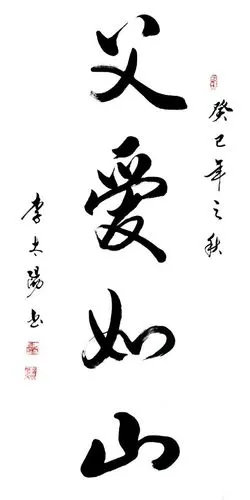 癸巳年之秋
父爱如山
李太阳书